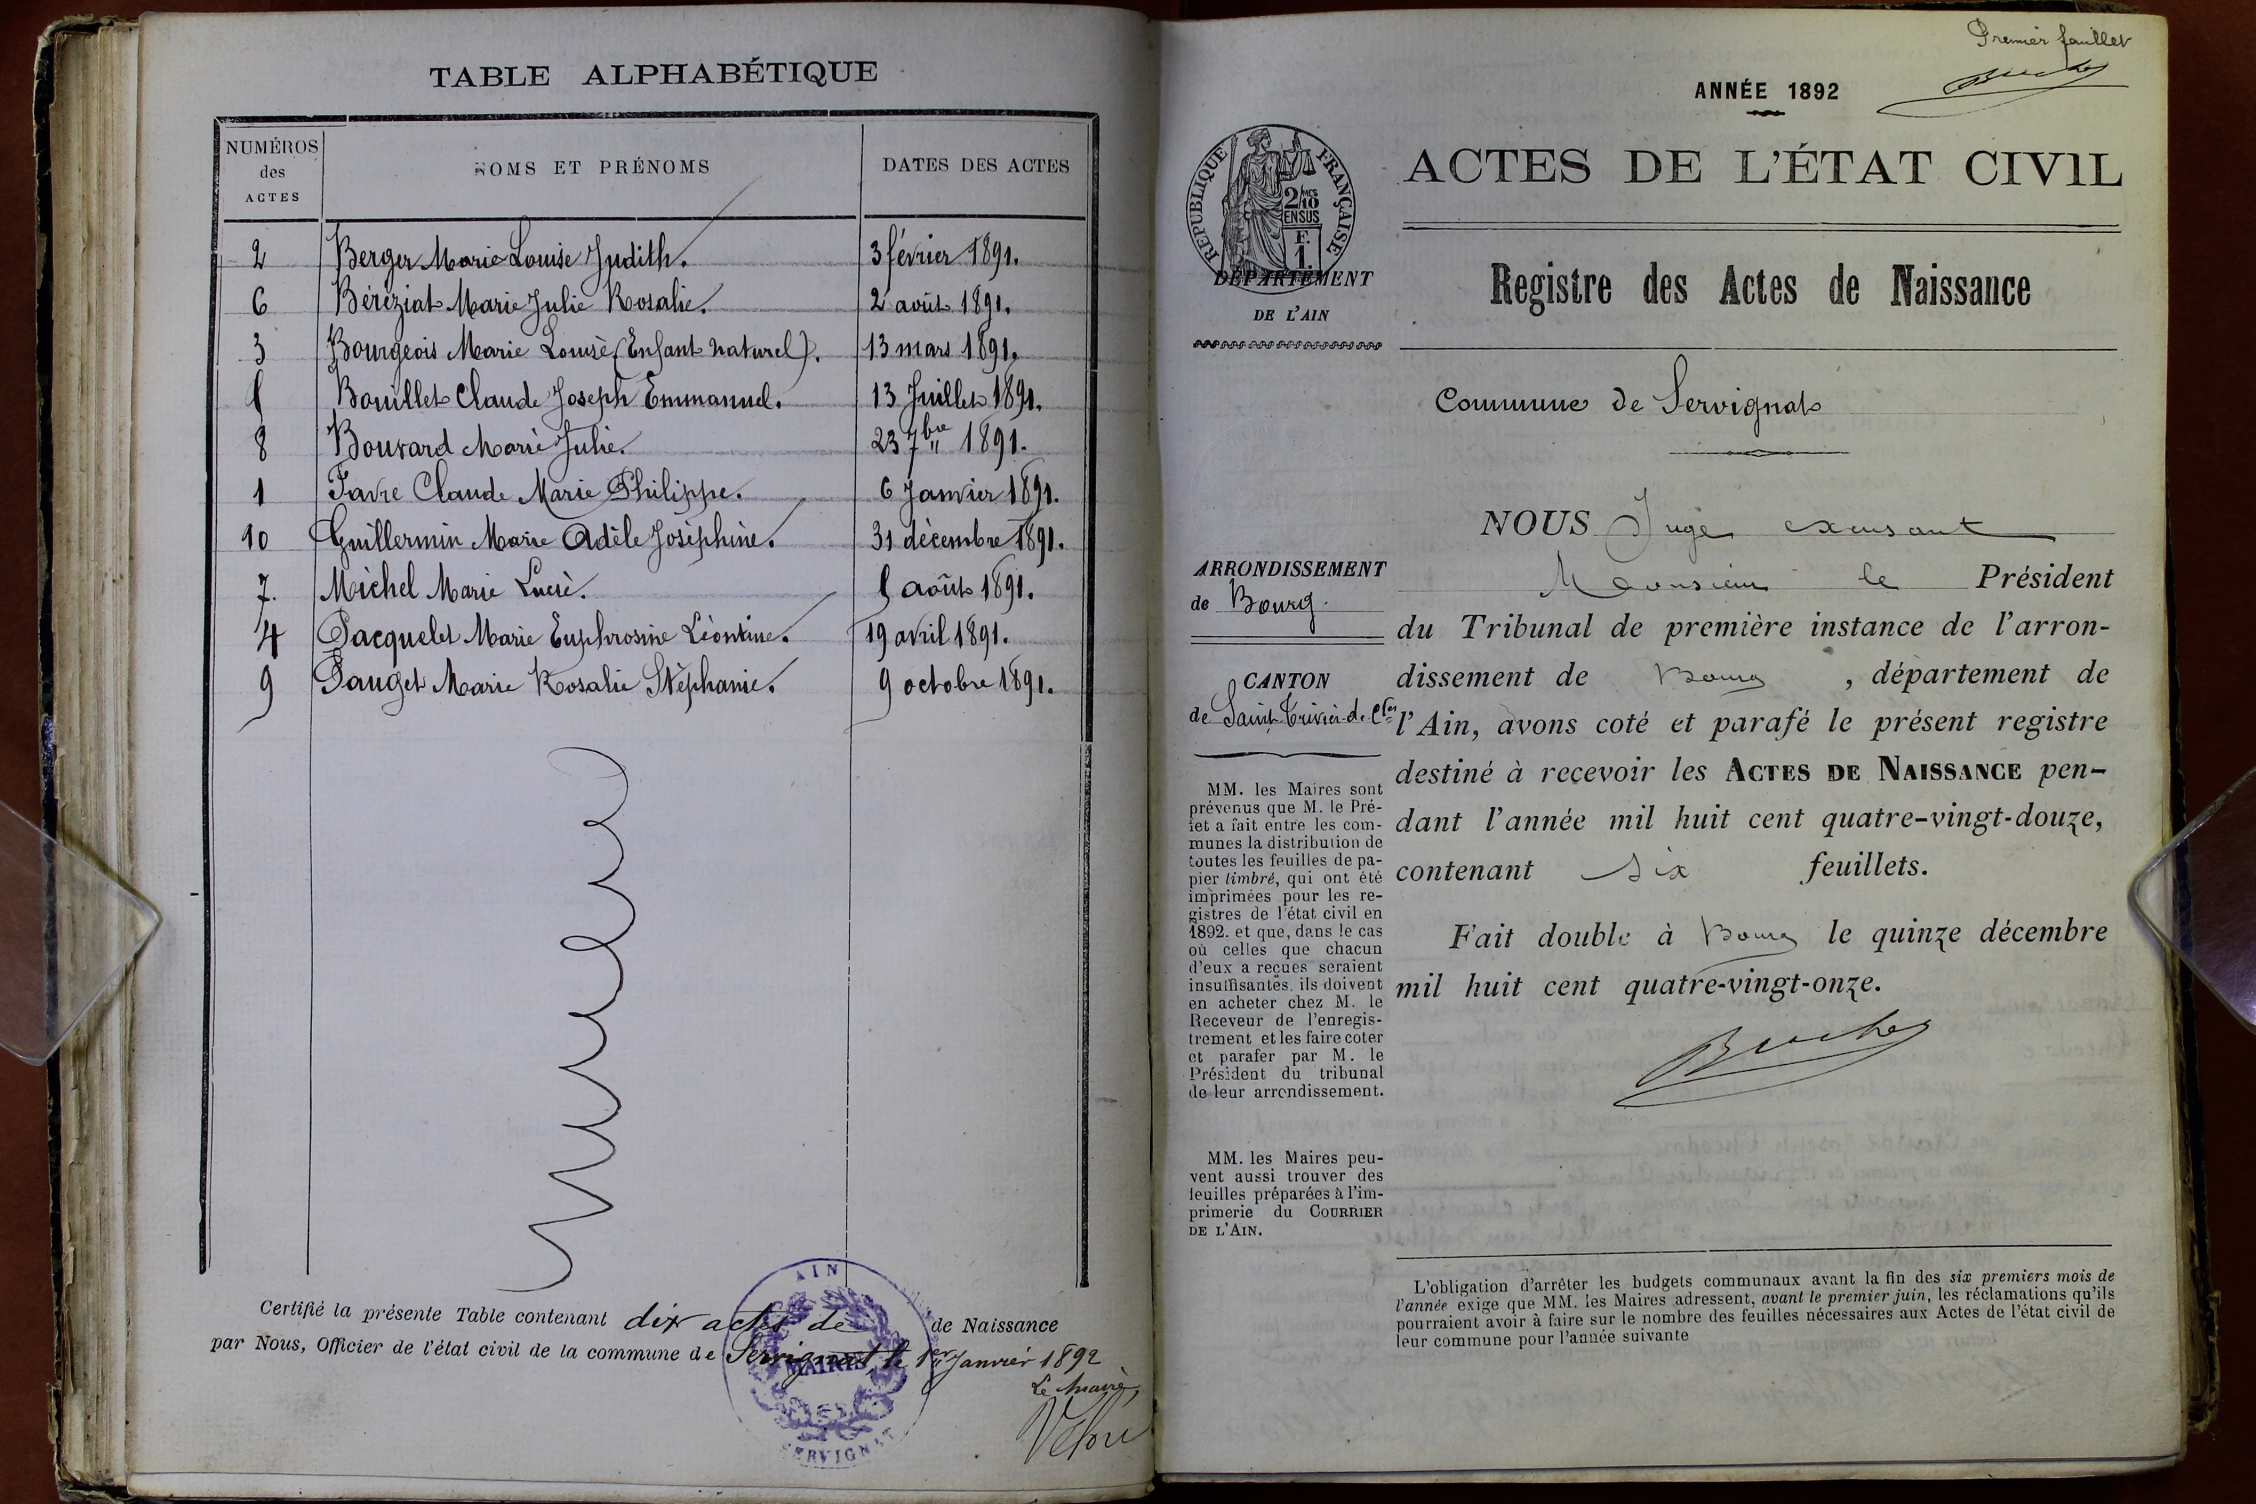 TABLE ALPHABÉTIQUE
NUMÉROS des ACTES
NOMS ET PRÉNOMS
DATES DES ACTES
2 Berger Marie Louise Judith. 3 février 1891.
6 Béréziat Marie Julie Rosalie. 2 août 1891.
3 Bourgeois Marie Louise (Enfant naturel). 13 mars 1891.
5 Bouillet Claude Joseph Emmanuel. 13 Juillet 1891.
8 Bouvard Marie Julie. 23 7bre 1891.
1 Favre Claude Marie Philippe. 6 Janvier 1891.
10 Guillermin Marie Adèle Joséphine. 31 décembre 1891.
7. Michel Marie Lucie. 5 août 1891.
4 Pacquelet Marie Euphrosine Léontine. 19 avril 1891.
9 Pauget Marie Rosalie Stéphanie. 9 octobre 1891.
Certifié la présente Table contenant dix actes de de Naissance
par Nous, Officier de l'état civil de la commune de Servignat, le 1er Janvier 1892
Le Maire,
AIN
MAIRIE
SERVIGNAT
Premier feuillet
ANNÉE 1892
RÉPUBLIQUE FRANÇAISE
2/10
EN SUS
F.
1.
DÉPARTEMENT
DE L'AIN
ACTES DE L'ÉTAT CIVIL
Registre des Actes de Naissance
Commune de Servignat
ARRONDISSEMENT
de Bourg.
CANTON
de Saint Trivier-de-Ctes
MM. les Maires sont
prévenus que M. le Pré-
fet a fait entre les com-
munes la distribution de
toutes les feuilles de pa-
pier timbré, qui ont été
imprimées pour les re-
gistres de l'état civil en
1892. et que, dans le cas
où celles que chacun
d'eux a reçues seraient
insuffisantes, ils doivent
en acheter chez M. le
Receveur de l'enregis-
trement et les faire coter
et parafer par M. le
Président du tribunal
de leur arrondissement.
MM. les Maires peu-
vent aussi trouver des
feuilles préparées à l'im-
primerie du COURRIER
DE L'AIN.
NOUS Juge excusant
Monsieur le Président
du Tribunal de première instance de l'arron-
dissement de Bourg, département de
l'Ain, avons coté et parafé le présent registre
destiné à recevoir les ACTES DE NAISSANCE pen-
dant l'année mil huit cent quatre-vingt-douze,
contenant six feuillets.
Fait double à Bourg le quinze décembre
mil huit cent quatre-vingt-onze.
L'obligation d'arrêter les budgets communaux avant la fin des six premiers mois de
l'année exige que MM. les Maires adressent, avant le premier juin, les réclamations qu'ils
pourraient avoir à faire sur le nombre des feuilles nécessaires aux Actes de l'état civil de
leur commune pour l'année suivante